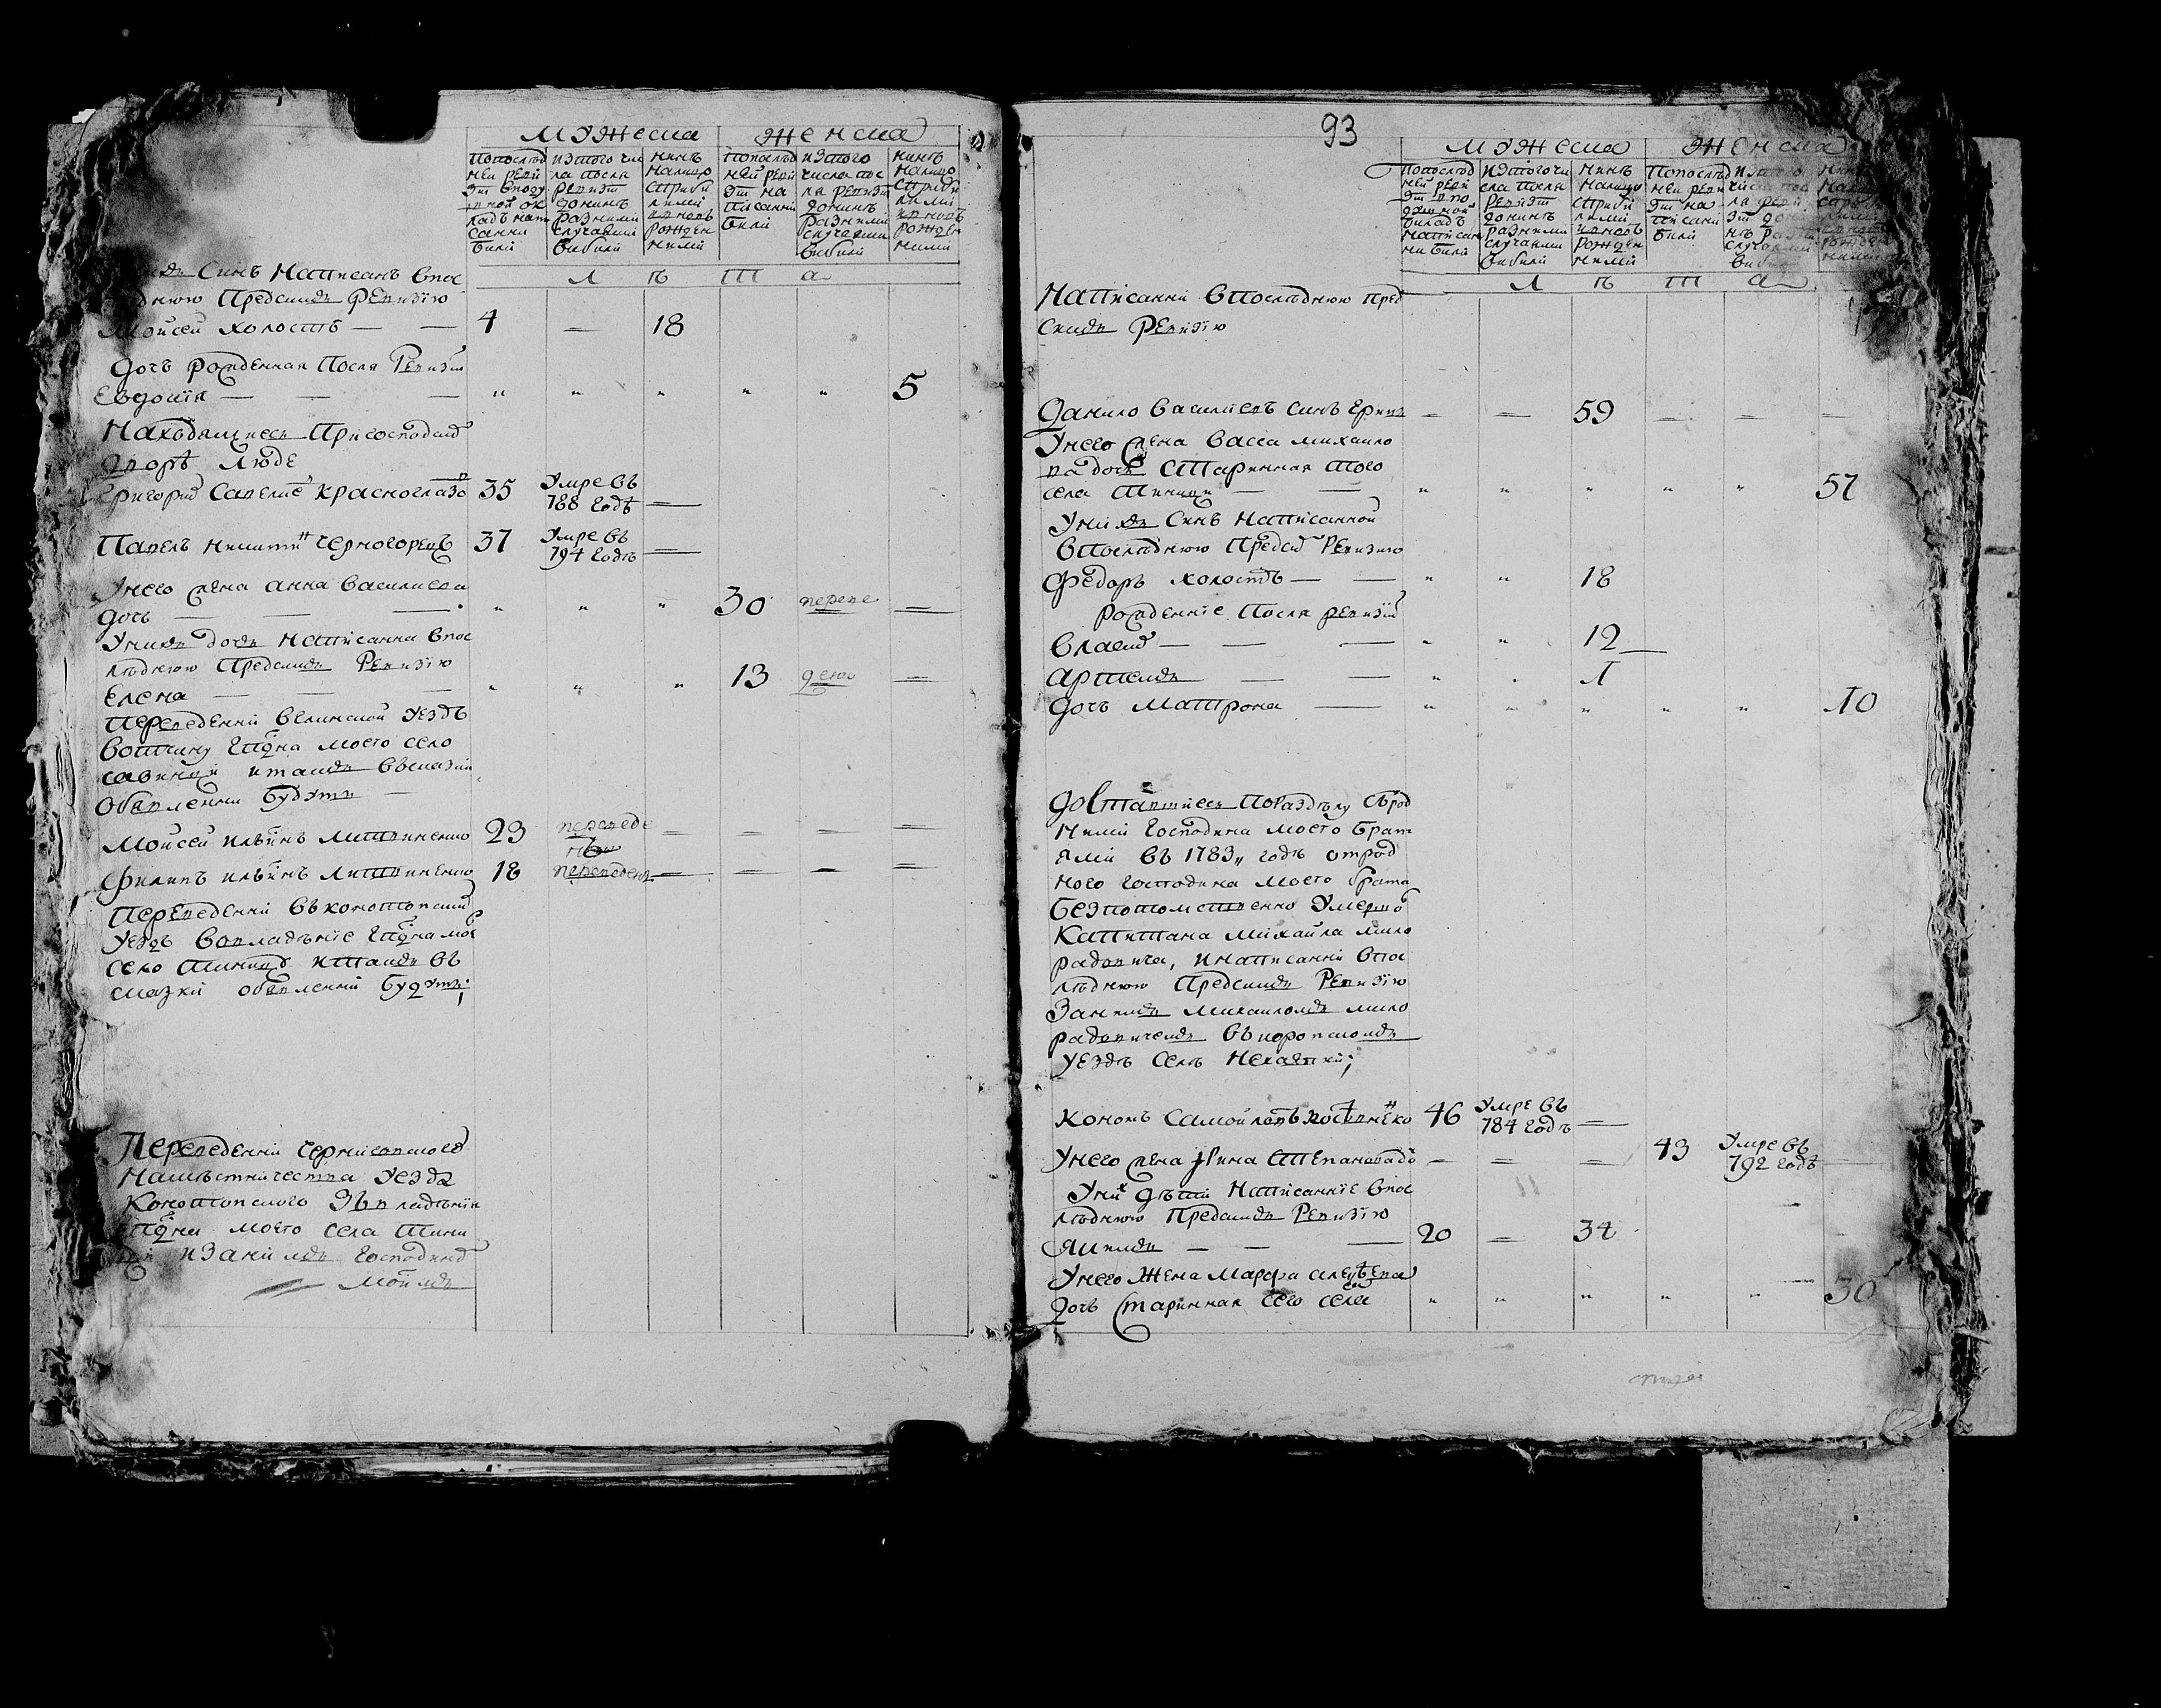 мужеска
женска
попослед
ней реви
зіи вподу
шной ок
ладъ напи
санни
били
изтого чи
сла посла
ревизіи
до нинѣ
разними
случаями
вибили
нинѣ
налицо
сприби
лими
и вновь
рожден
ними
попослед
ней реви
зіи на
писанни
били
изтого
числа пос
ла ревизіи
донинѣ
разними
случаями
вибили
нинѣ
налицо
сприби
лими
и вновь
рожден
ними
л ѣ т а
синъ написанъ впос
леднюю предсимъ ревизію
Мойсей холостъ — — 4 — 18
дочъ рожденная посля ревизіи
Евдокія — — — " " " " " 5
Находящиесь пригосподскомъ
дворѣ люде
Григорій Савелиевъ Красноглазовъ 35 умре въ
788 годѣ —
Павелъ Никитинъ Черногорецъ 37 умре въ
794 годѣ —
Унего жена Анна Василиева
дочь — — " " " 30 переве =
Унихъ дочь написанна впос
лѣднюю предсимъ ревизію
Елена — — — " " " 13 дена =
переведенній
вотчину гпдна моего село
и такмъ въ сказки
обявленни будутъ —
Мойсей Ильинъ Литвиненко 23 переведе
нъ = = = =
Филипъ Ильинъ Литвиненко 18 переведенъ — = = =
Переведенній въ Конотопский
уездъ вовладѣніе гпдна моего
село Тиницу и такмъ въ
сказки обявленній будутъ;
Переведенній Черниговского
намѣстничества уезда
Конотопского зъвладѣнія
гпдна моего села Тини
цы изанимъ господиномъ
моимъ
93
мужеска
женска
попослед
ней реви
зіи впо
душной
окладъ
написан
ни били
изтого чи
сла посла
ревизіи
донинѣ
разними
случаями
вибили
нинѣ
налицо
сприби
лими
и вновь
рожден
ними
попослед
ней реви
зіи на
писани
били
л ѣ т а
Написанній впослѣднюю пред
симъ ревизію
Данило Василиевъ синъ — — 59 — — —
Унего жена Васса Михайло
ва дочь старинная того
села Тиници — — " " " " " 57
Унихъ синъ написанной
впослѣднюю предсимъ ревизию
Федоръ холостъ — — " " 18
рожденніе посля ревизій
Власий — — — " " 12
Артемъ — — " " 1
дочъ Матрона — " " " " " 10
доставшиесь поразделу сърод
ними господина моего брат
ями въ 1783 годѣ отрод
ного господина моего брата
безпотомственно умершого
капитана Михайла Мило
радовича, инаписанній впос
лѣднюю предсимъ ревизію
Занимъ Михайломъ Мило
радовичемъ въ Коропскомъ
уездѣ селѣ Нехаевки;
Кононъ Самойловъ Костенко 46 умре въ
784 годѣ =
Унего жена Ирина Степановадоч — = = 43 умре въ
792 годѣ —
Унихъ дѣти написанніе впос
лѣднюю предсимъ ревизію
Якимъ — — — 20 = 34
Унего жена Марфа Алексѣева
дочь старинная сего села " " " " " 30